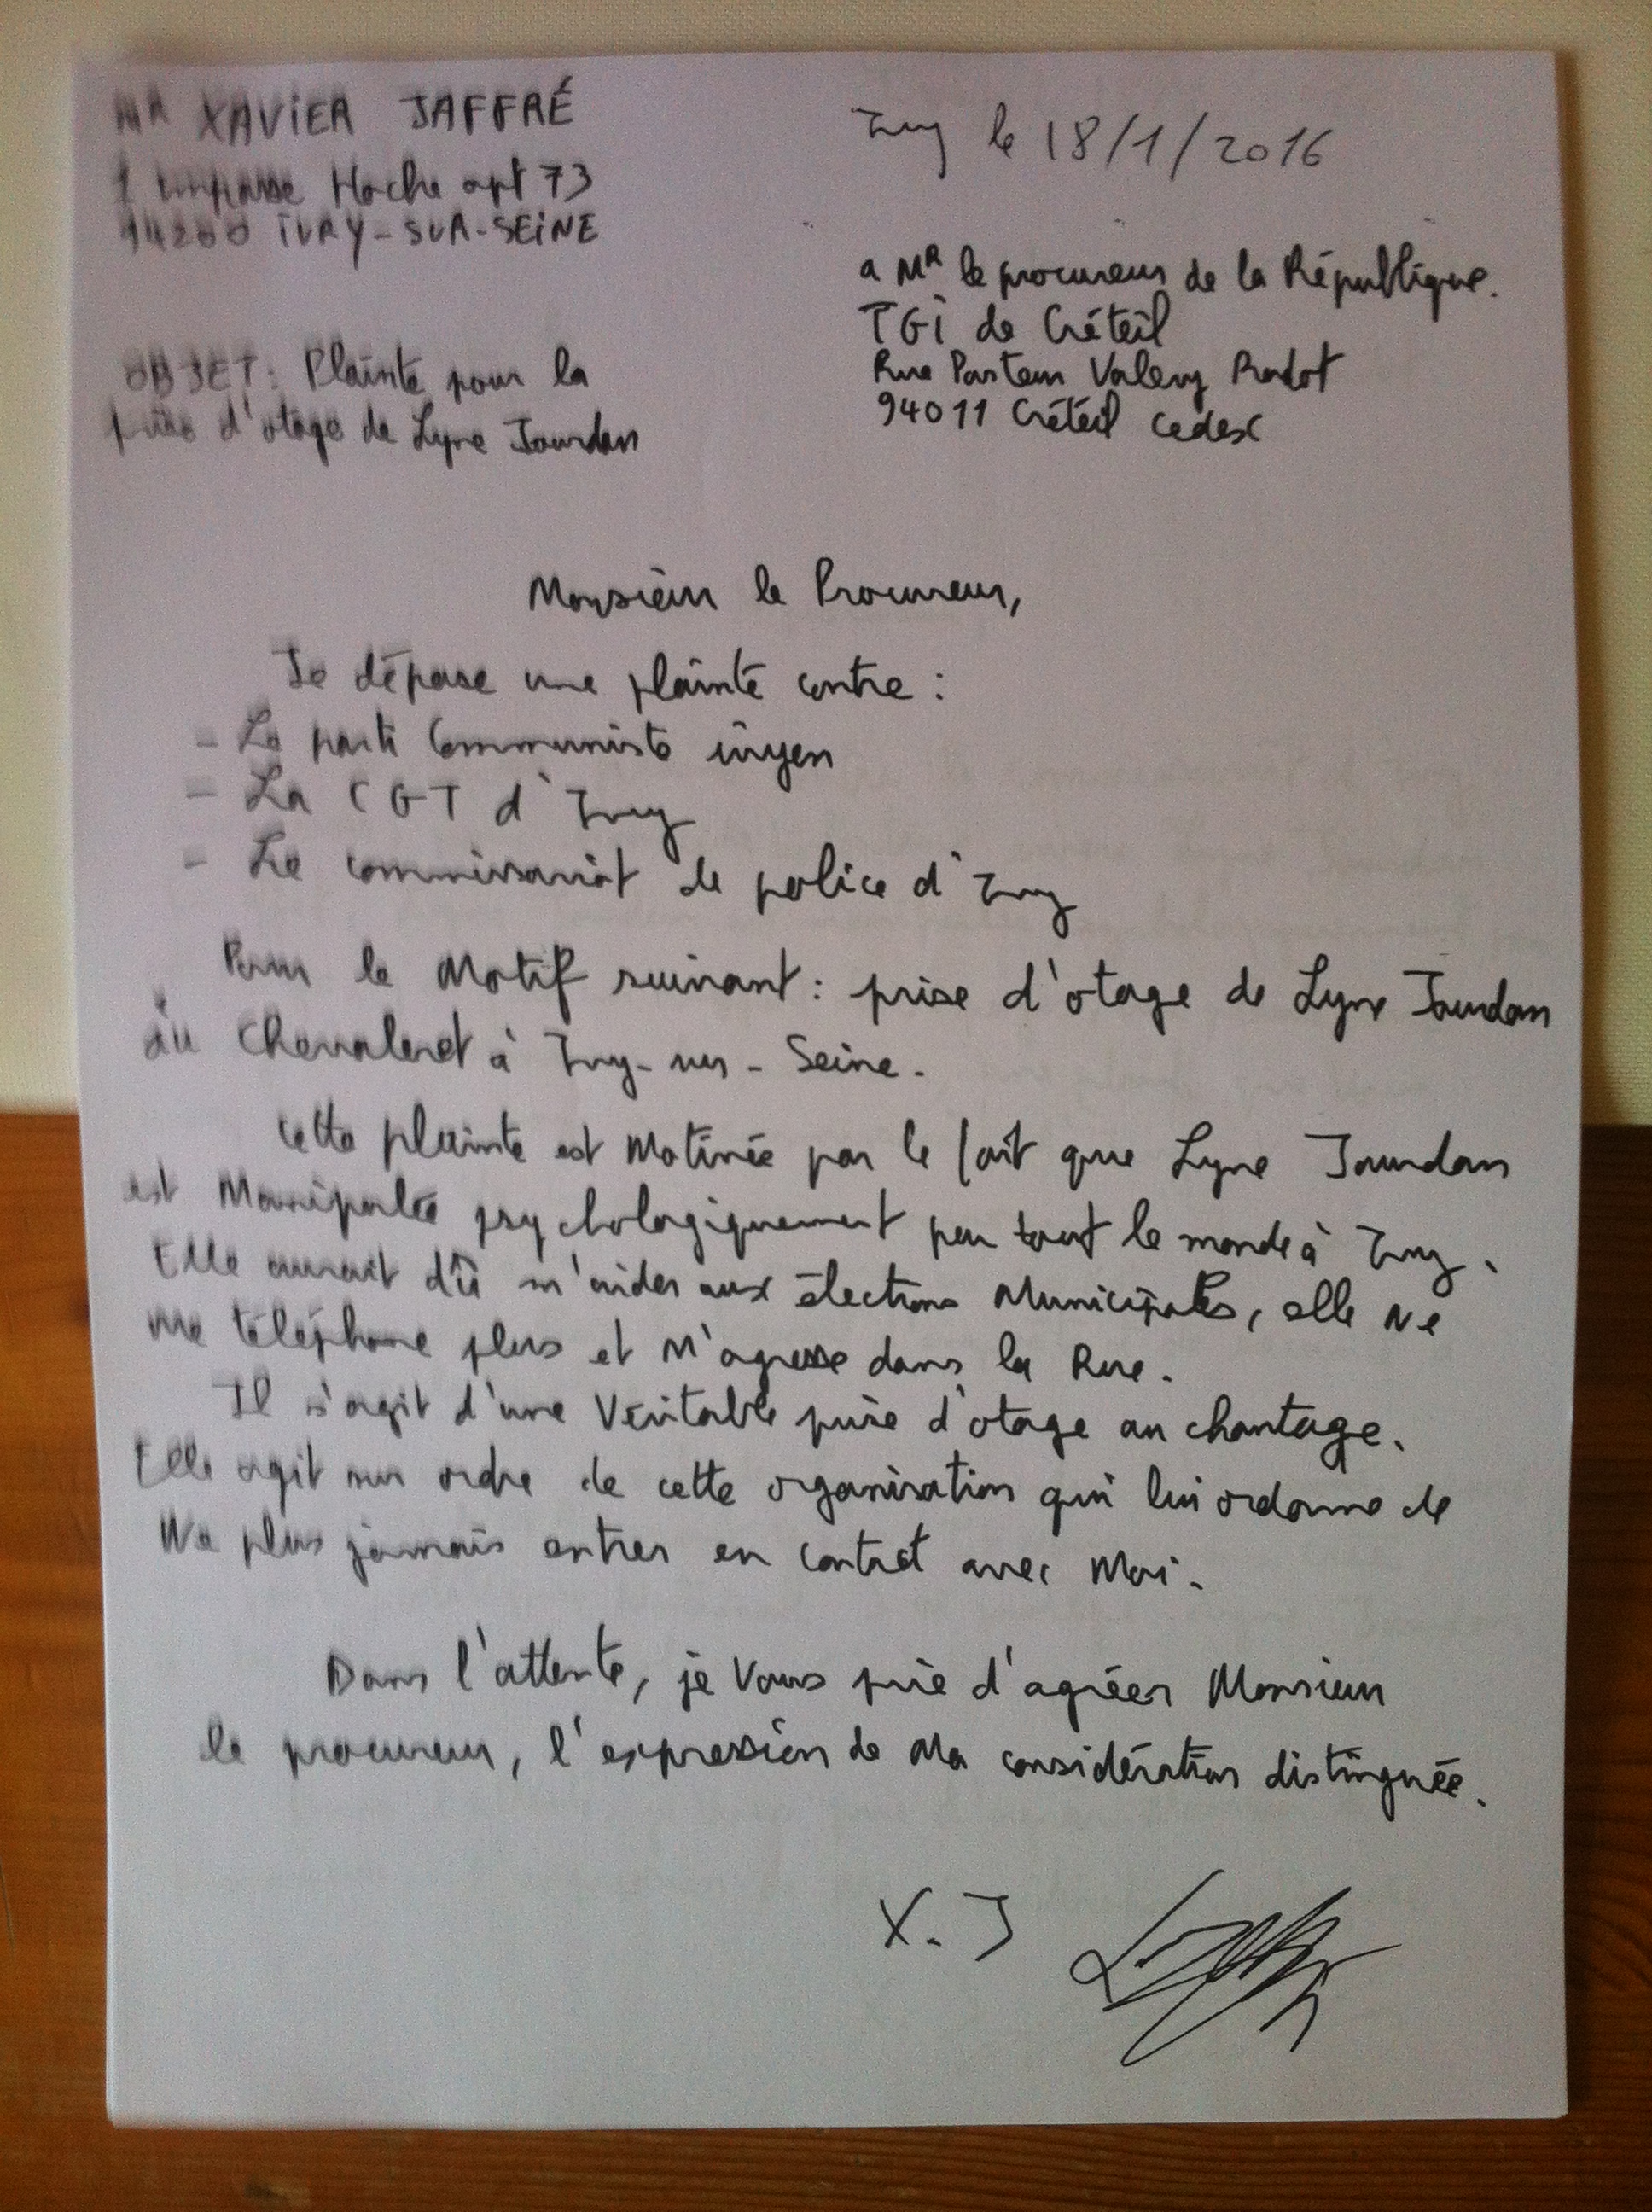 MR XAVIER JAFFRÉ
1 impasse Hoche apt 73
94200 IVRY-SUR-SEINE
Ivry le 18/1/2016
a MR le procureur de la République.
TGI de Créteil
Rue Pasteur Valery Radot
94011 Créteil cedex
OBJET: Plainte pour la
prise d'otage de Lyne Jourdan
Monsieur le Procureur,
Je dépose une plainte contre :
- Le parti Communiste ivryen
- La CGT d'Ivry
- Le commissariat de police d'Ivry
Pour le Motif suivant : prise d'otage de Lyne Jourdan
au Chevaleret à Ivry-sur-Seine.
Cette plainte est Motivée par le fait que Lyne Jourdan
est Manipulée psychologiquement par tout le monde à Ivry.
Elle aurait dû m'aider aux élections Municipales, elle Ne
me téléphone plus et M'agresse dans la Rue.
Il s'agit d'une Véritable prise d'otage au chantage.
Elle agit sur ordre de cette organisation qui lui ordonne de
Ne plus jamais entrer en contact avec Moi.
Dans l'attente, je Vous prie d'agréer Monsieur
le procureur, l'expression de Ma considération distinguée.
X.J